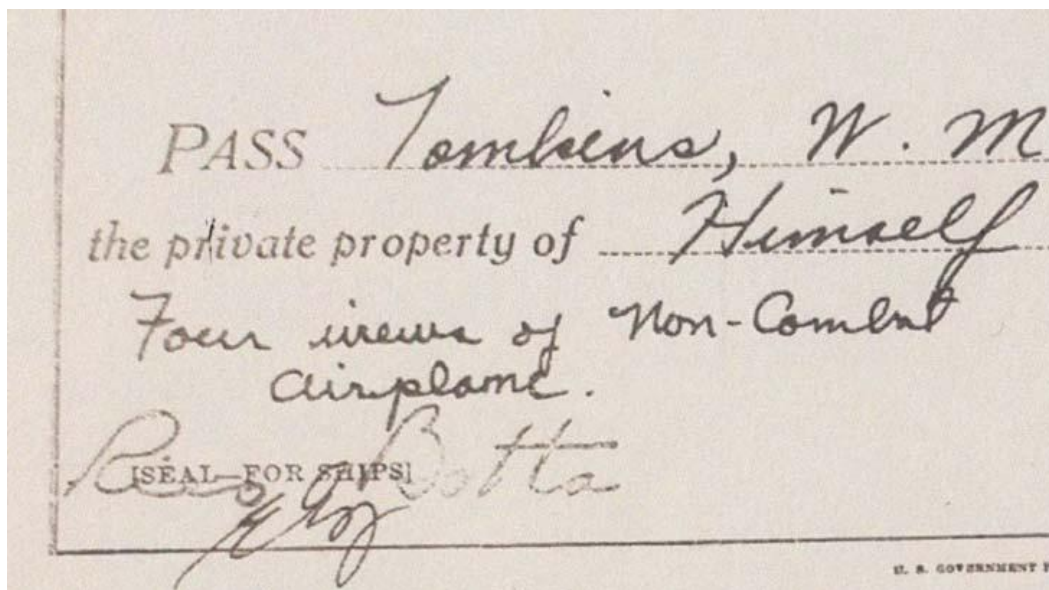 PASS Tomkins, W. M
the private property of Himself
Four views of Non-Combat
airplane.
Rico Botta
[SEAL—FOR SHIPS]
U. S. GOVERNMENT